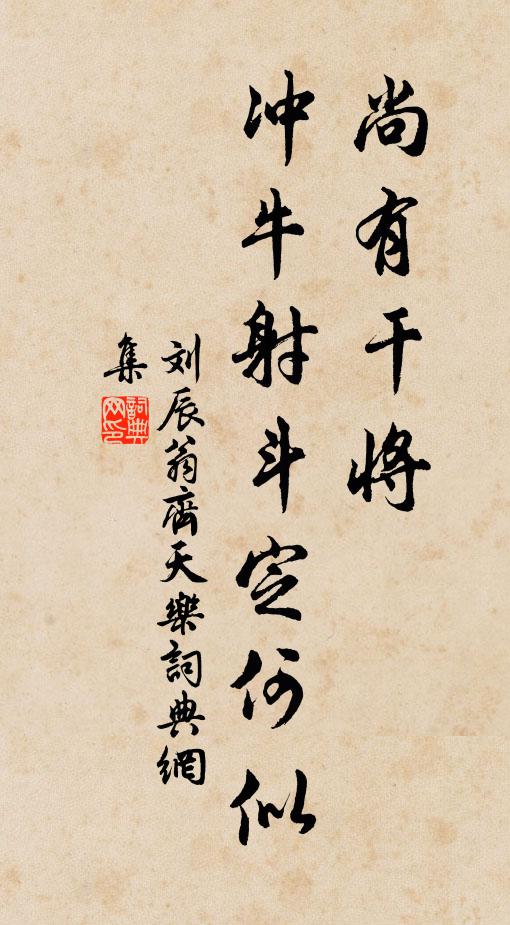 尚有干将
冲牛射斗定何似
刘辰翁齊天樂詞典網
集
詞典
网印